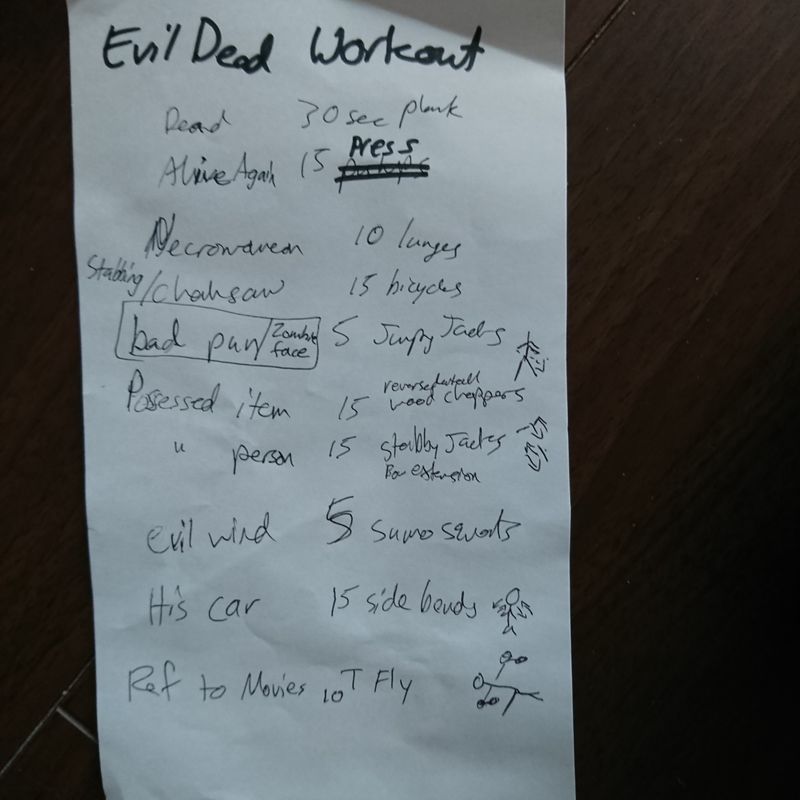 Evil Dead Workout
Dead 30 sec plank
Alive Again 15 Press
10 lunges
Stabbing/chainsaw 15 bicycles
bad pun/Zombie face 5 Jumpy Jacks
Possessed item 15 wood choppers
" person 15 stabby Jacks
extension
evil wind 5 sumo
His car 15 side bends
Ref to Movies 10 T Fly